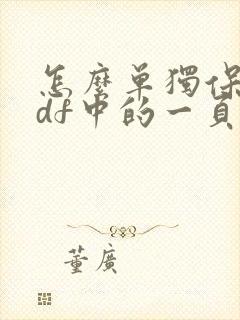 怎麼单獨保
df中的一頁
董廣